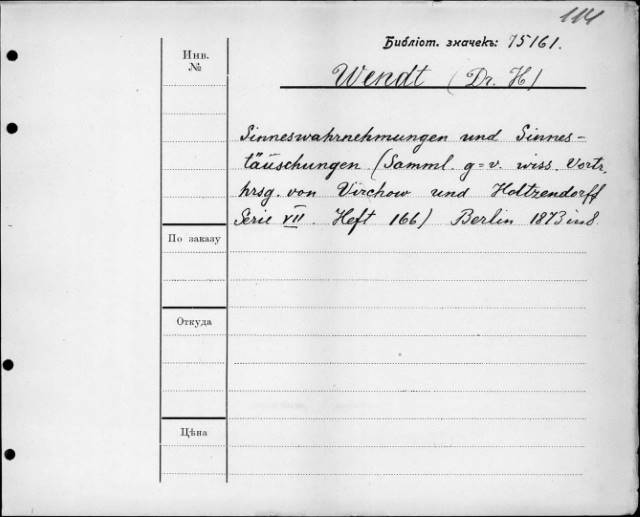 114
Библіот. значекъ: 75161.
Инв.
№
Wendt (Dr. H)
Sinneswahrnehmungen und Sinnes-
täuschungen (Samml. g=v. wiss. Vortr.
hrsg. von Virchow und Holtzendorff
Serie VII. Heft 166) Berlin 1873 in 8.
По заказу
Откуда
Цѣна